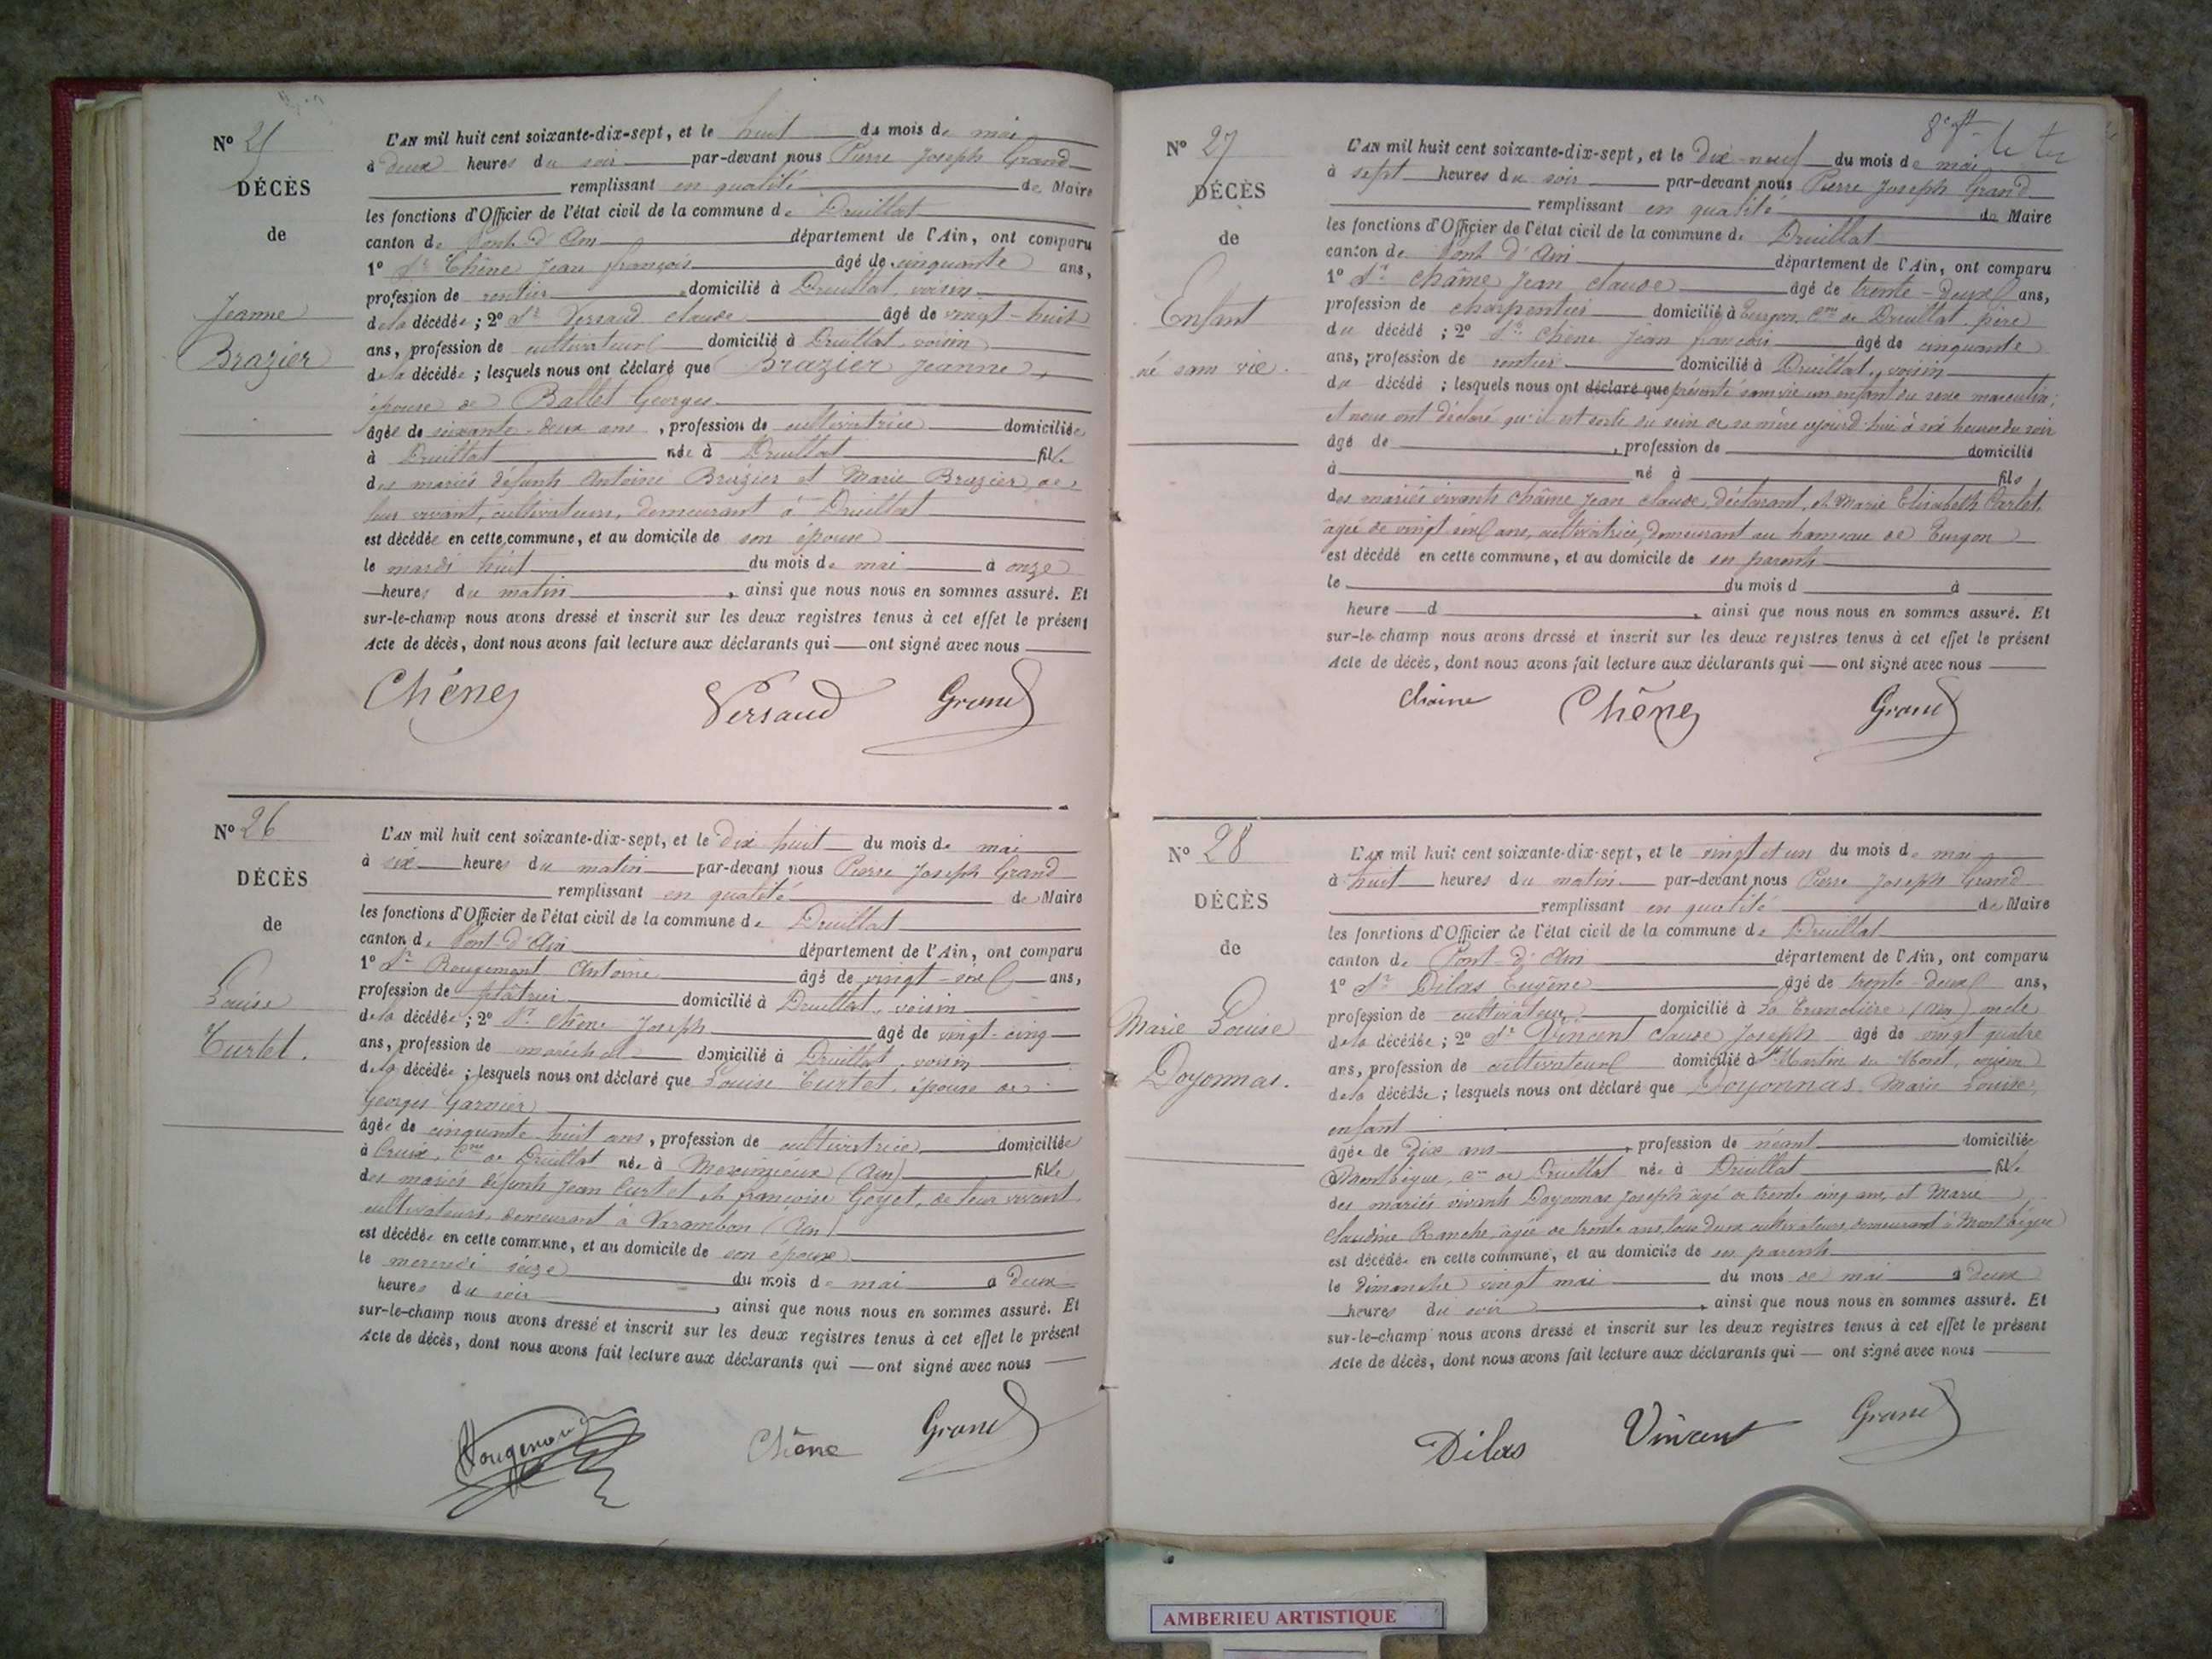 Nº 25
DÉCÈS
de
Jeanne
Brazier
L'AN mil huit cent soixante-dix-sept, et le huit du mois de mai
à deux heures du soir par-devant nous Pierre Joseph Grand
remplissant en qualité de Maire
les fonctions d'Officier de l'état civil de la commune de Druillat
canton de Pont d'Ain département de l'Ain, ont comparu
1º Sr Chêne Jean françois âgé de cinquante ans,
profession de rentier domicilié à Druillat, voisin
de la décédée ; 2º Sr Versaud claude âgé de vingt-huit
ans, profession de cultivateur domicilié à Druillat, voisin
de la décédée ; lesquels nous ont déclaré que Brazier Jeanne,
épouse de Ballet Georges
âgée de soixante-deux ans, profession de cultivatrice domiciliée
à Druillat née à Druillat fille
des mariés défunts Antoine Brazier et Marie Brazier, de
leur vivant, cultivateurs, demeurant à Druillat
est décédée en cette commune, et au domicile de son époux
le mardi huit du mois de mai à onze
heures du matin, ainsi que nous nous en sommes assuré. Et
sur-le-champ nous avons dressé et inscrit sur les deux registres tenus à cet effet le présent
Acte de décès, dont nous avons fait lecture aux déclarants qui ont signé avec nous
Chêne Versaud Grand
Nº 26
DÉCÈS
de
Louise
Curtet.
L'AN mil huit cent soixante-dix-sept, et le dix huit du mois de mai
à six heures du matin par-devant nous Pierre Joseph Grand
remplissant en qualité de Maire
les fonctions d'Officier de l'état civil de la commune de Druillat
canton de Pont d'Ain département de l'Ain, ont comparu
1º Sr Rougemont Antoine âgé de vingt-six ans,
profession de plâtrier domicilié à Druillat, voisin
de la décédée ; 2º Sr Chêne Joseph âgé de vingt-cinq
ans, profession de maréchal domicilié à Druillat, voisin
de la décédée ; lesquels nous ont déclaré que Louise Curtet, épouse de
Georges Garnier
âgée de cinquante huit ans, profession de cultivatrice domiciliée
à Cruix, Cne de Druillat née à Meximieux (Ain) fille
des mariés défunts Jean Curtet et françoise Goyet, de leur vivant
cultivateurs, demeurant à Varambon (Ain)
est décédée en cette commune, et au domicile de son époux
le mercredi seize du mois de mai à deux
heures du soir, ainsi que nous nous en sommes assuré. Et
sur-le-champ nous avons dressé et inscrit sur les deux registres tenus à cet effet le présent
Acte de décès, dont nous avons fait lecture aux déclarants qui ont signé avec nous
Rougemont Chêne Grand
Nº 27
DÉCÈS
de
Enfant
né sans vie.
L'AN mil huit cent soixante-dix-sept, et le dix-neuf du mois de mai
à sept heures du soir par-devant nous Pierre Joseph Grand
remplissant en qualité de Maire
les fonctions d'Officier de l'état civil de la commune de Druillat
canton de Pont d'Ain département de l'Ain, ont comparu
1º Sr Chaîne Jean claude âgé de trente-deux ans,
profession de charpentier domicilié à Turgon, Cne de Druillat, père
du décédé ; 2º Sr Chêne Jean françois âgé de cinquante
ans, profession de rentier domicilié à Druillat, voisin
du décédé ; lesquels nous ont déclaré que présenté sans vie un enfant du sexe masculin,
et nous ont déclaré qu'il est sorti du sein de sa mère cejourd'hui à six heures du soir
âgé de , profession de domicilié
à né à fils
des mariés vivants Chaîne Jean claude, déclarant, et Marie Elisabeth Carlet
âgée de vingt six ans, cultivatrice, demeurant au hameau de Turgon
est décédé en cette commune, et au domicile de ses parents
le du mois d à
heure d , ainsi que nous nous en sommes assuré. Et
sur-le-champ nous avons dressé et inscrit sur les deux registres tenus à cet effet le présent
Acte de décès, dont nous avons fait lecture aux déclarants qui ont signé avec nous
Chaine Chêne Grand
Nº 28
DÉCÈS
de
Marie Louise
Doyonnas.
L'AN mil huit cent soixante-dix-sept, et le vingt et un du mois de mai
à huit heures du matin par-devant nous Pierre Joseph Grand
remplissant en qualité de Maire
les fonctions d'Officier de l'état civil de la commune de Druillat
canton de Pont-d'Ain département de l'Ain, ont comparu
1º Sr Dilas Eugène âgé de trente-deux ans,
profession de cultivateur domicilié à La Tranclière (Ain) oncle
de la décédée ; 2º Sr Vincent claude Joseph âgé de vingt quatre
ans, profession de cultivateur domicilié à St Martin du Mont, cousin
de la décédée ; lesquels nous ont déclaré que Doyonnas Marie Louise,
enfant
âgée de dix ans, profession de néant domiciliée
à Montbègue, cne de Druillat née à Druillat fille
des mariés vivants Doyonnas Joseph âgé de trente cinq ans, et Marie
Claudine Ranche, âgée de trente ans, tous deux cultivateurs, demeurant à Montbègue
est décédée en cette commune, et au domicile de ses parents
le dimanche vingt mai du mois de mai à deux
heures du soir, ainsi que nous nous en sommes assuré. Et
sur-le-champ nous avons dressé et inscrit sur les deux registres tenus à cet effet le présent
Acte de décès, dont nous avons fait lecture aux déclarants qui ont signé avec nous
Dilas Vincent Grand
AMBERIEU ARTISTIQUE